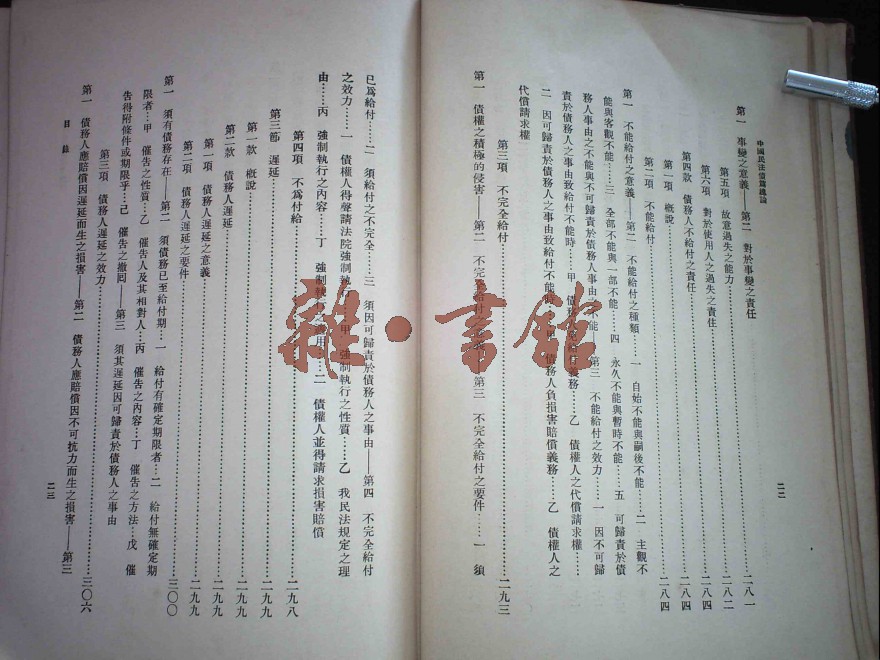 中國民法債篇總論
二二
第一 事變之意義——第二 對於事變之責任……二八一
第五項 故意過失之能力……二八二
第六項 對於使用人之過失之責任……二八四
第四款 債務人不給付之責任……二八四
第一項 概說……二八四
第二項 不能給付……二八四
第一 不能給付之意義——第二 不能給付之種類……一 自始不能與嗣後不能……二 主觀不
能與客觀不能……三 全部不能與一部不能……四 永久不能與暫時不能……五 可歸責於債
務人事由之不能與不可歸責於債務人事由之不能——第三 不能給付之效力……一 因不可歸
責於債務人之事由致給付不能時……甲 債務人 義務……乙 債權人之代償請求權……
二 因可歸責於債務人之事由致給付不能時……甲 債務人負損害賠償義務……乙 債權人之
代償請求權
第三項 不完全給付……二九三
第一 債權之積極的侵害——第二 不完全給付之 第三 不完全給付之要件……一 須
已爲給付……二 須給付之不完全……三 須因可歸責於債務人之事由——第四 不完全給付
之效力……一 債權人得聲請法院強制執行……甲 強制執行之性質……乙 我民法規定之理
由……丙 強制執行之內容……丁 強制執 用……二 債權人並得請求損害賠償
第四項 不爲付給……二九八
第三節 遲延……二九九
第一款 概說……二九九
第二款 債務人遲延……二九九
第一項 債務人遲延之意義……二九九
第二項 債務人遲延之要件……三〇〇
第一 須有債務存在——第二 須債務已至給付期……一 給付有確定期限者……二 給付無確定期
限者……甲 催告之性質……乙 催告人及其相對人……丙 催告之內容……丁 催告之方法……戊 催
告得附條件或期限乎……己 催告之撤囘——第三 須其遲延因可歸責於債務人之事由
第三項 債務人遲延之效力……三〇六
第一 債務人應賠償因遲延而生之損害——第二 債務人應賠償因不可抗力而生之損害——第三
目錄
二三
雜·書館